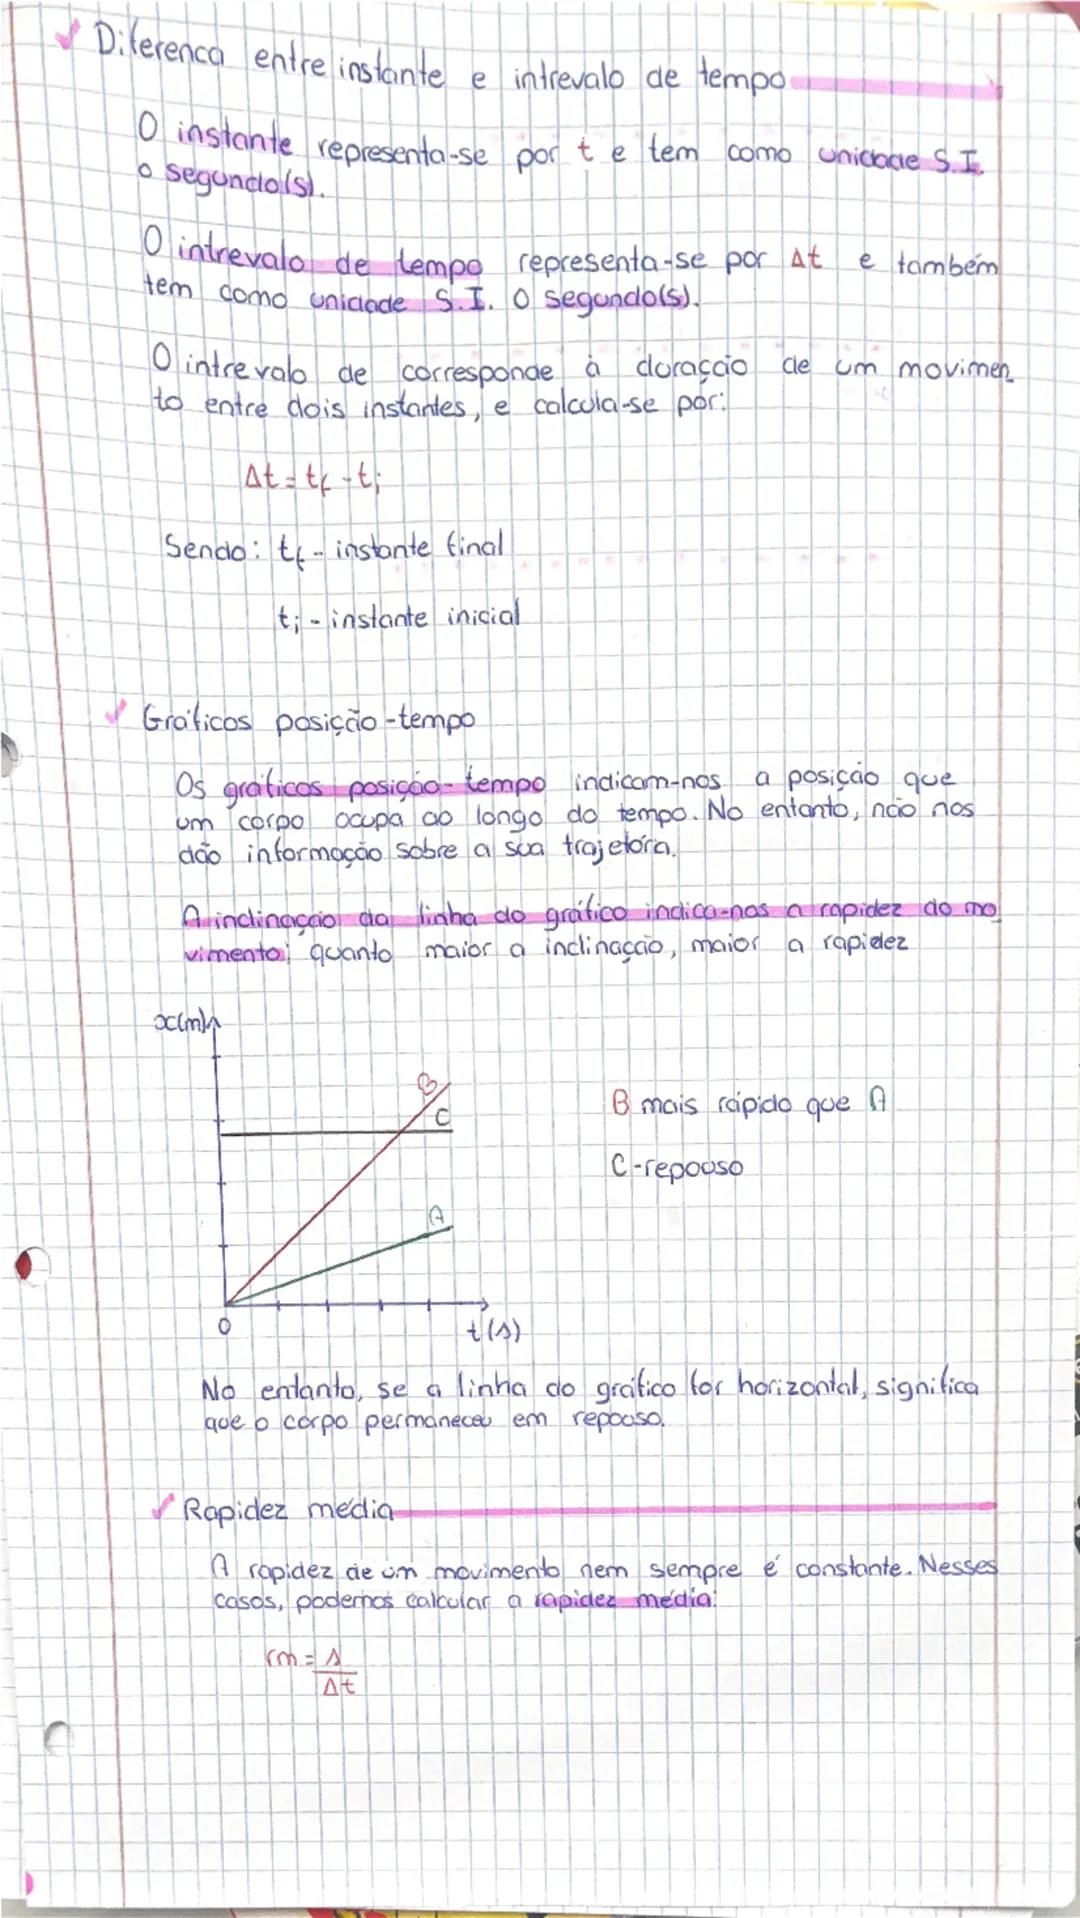 Diferenca entre instante e intrevalo de tempo
O instante representa-se por t e tem como unidade S.I.
o segundo(s).
O intrevalo de tempo representa-se por Δt e também
tem como unidade S.I. O segundo(s).
O intrevalo de corresponde à duração de um movimen
to entre dois instantes, e calcula-se por:
Δt = tf - ti
Sendo: tf - instante final
ti - instante inicial
Gráficos posição-tempo
Os gráficos posição-tempo indicam-nos a posição que
um corpo ocupa ao longo do tempo. No entanto, não nos
dão informação sobre a sua trajetória.
A inclinação da linha do gráfico indica-nos a rapidez do mo
vimento; quanto maior a inclinação, maior a rapidez
x(m)
B
C
B mais rápido que A
C-repouso
A
0
t(s)
No entanto, se a linha do gráfico for horizontal, significa
que o corpo permaneceu em repouso.
Rapidez média
A rapidez de um movimento nem sempre é constante. Nesses
casos, podemos calcular a rapidez média:
rm = s
Δt